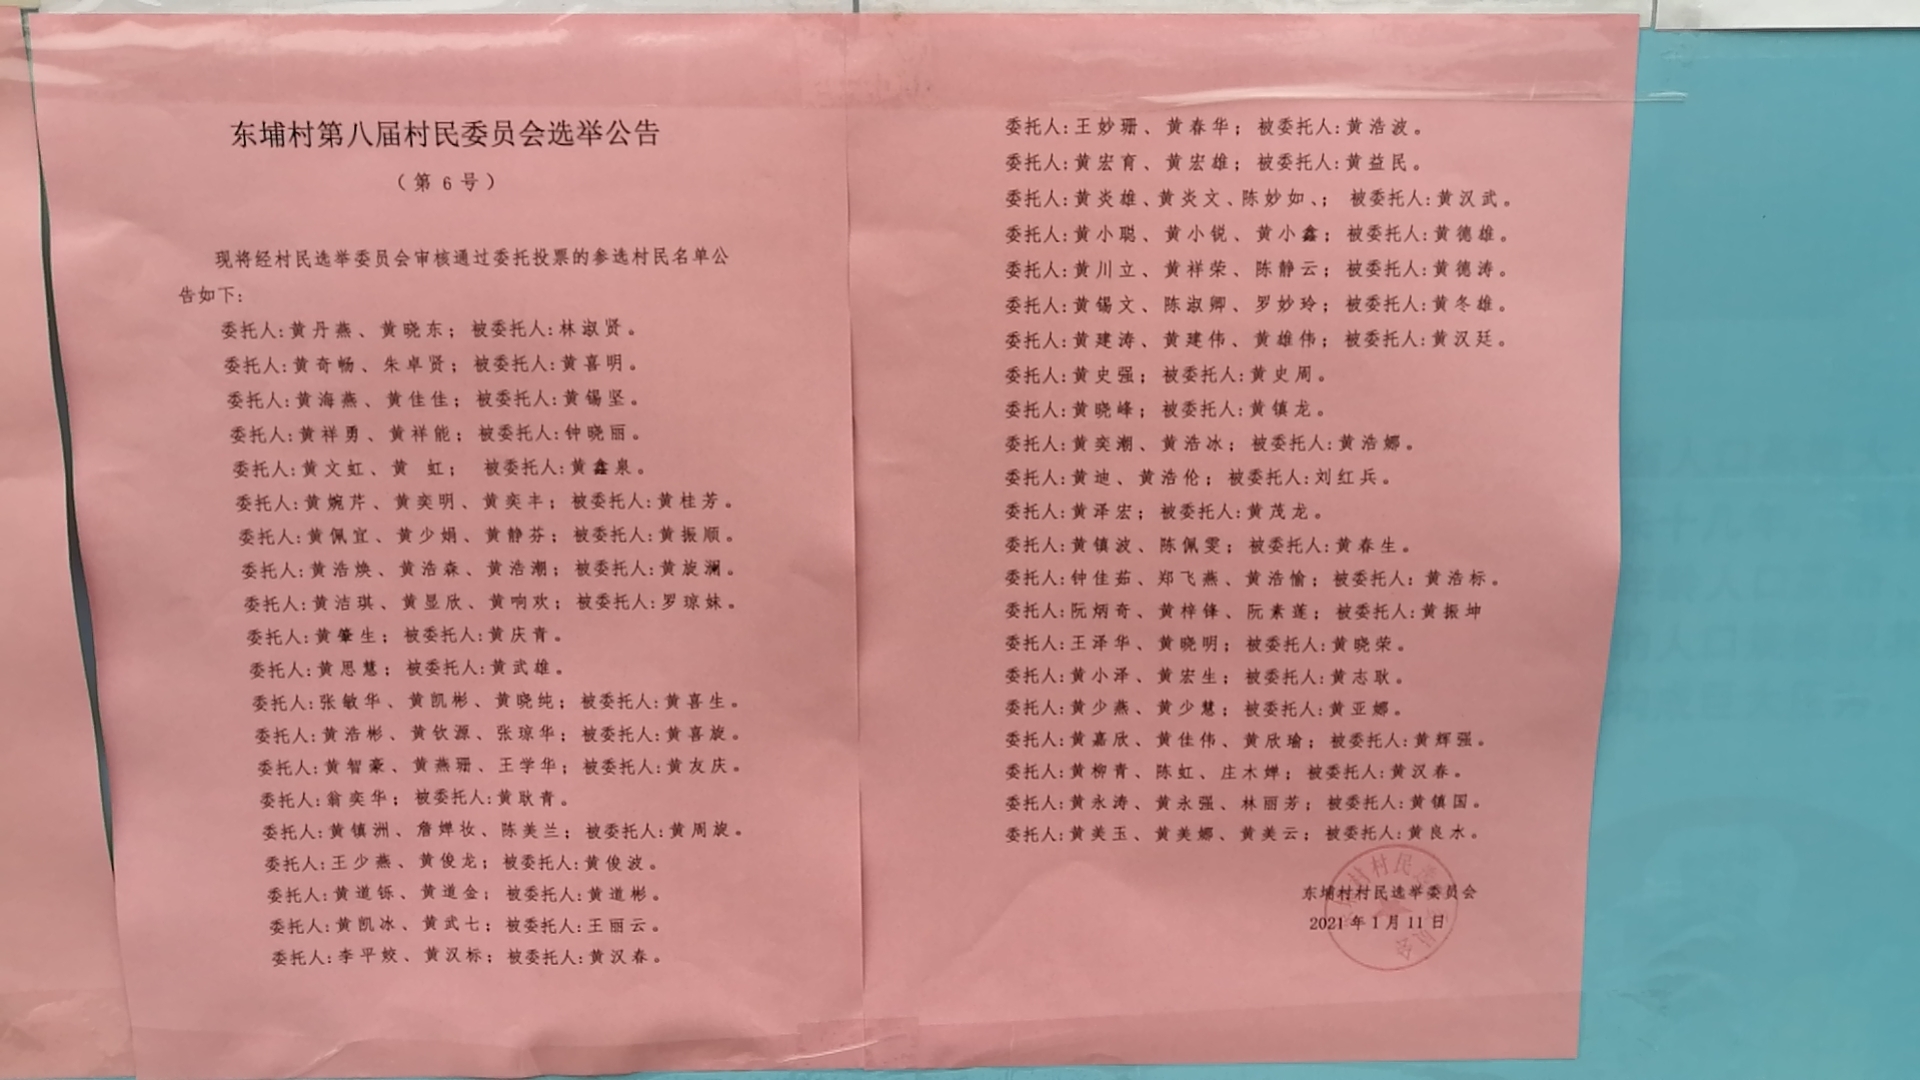 东埔村第八届村民委员会选举公告
（第 6 号）
现将经村民选举委员会审核通过委托投票的参选村民名单公
告如下:
委托人:黄丹燕、黄晓东；被委托人:林淑贤。
委托人:黄奇畅、朱卓贤；被委托人:黄喜明。
委托人:黄海燕、黄佳佳；被委托人:黄锡坚。
委托人:黄祥勇、黄祥能；被委托人:钟晓丽。
委托人:黄文虹、黄 虹； 被委托人:黄鑫泉。
委托人:黄婉芹、黄奕明、黄奕丰；被委托人:黄桂芳。
委托人:黄佩宜、黄少娟、黄静芬；被委托人:黄振顺。
委托人:黄浩焕、黄浩森、黄浩潮；被委托人:黄旋澜。
委托人:黄洁琪、黄显欣、黄响欢；被委托人:罗琼妹。
委托人:黄肇生；被委托人:黄庆青。
委托人:黄思慧；被委托人:黄武雄。
委托人:张敏华、黄凯彬、黄晓纯；被委托人:黄喜生。
委托人:黄浩彬、黄钦源、张琼华；被委托人:黄喜旋。
委托人:黄智豪、黄燕珊、王学华；被委托人:黄友庆。
委托人:翁奕华；被委托人:黄耿青。
委托人:黄镇洲、詹婵妆、陈美兰；被委托人:黄周旋。
委托人:王少燕、黄俊龙；被委托人:黄俊波。
委托人:黄道铄、黄道金；被委托人:黄道彬。
委托人:黄凯冰、黄武七；被委托人:王丽云。
委托人:李平姣、黄汉标；被委托人:黄汉春。
委托人:王妙珊、黄春华；被委托人:黄浩波。
委托人:黄宏育、黄宏雄；被委托人:黄益民。
委托人:黄炎雄、黄炎文、陈妙如、； 被委托人:黄汉武。
委托人:黄小聪、黄小锐、黄小鑫；被委托人:黄德雄。
委托人:黄川立、黄祥荣、陈静云；被委托人:黄德涛。
委托人:黄锡文、陈淑卿、罗妙玲；被委托人:黄冬雄。
委托人:黄建涛、黄建伟、黄雄伟；被委托人:黄汉廷。
委托人:黄史强；被委托人:黄史周。
委托人:黄晓峰；被委托人:黄镇龙。
委托人:黄奕潮、黄浩冰；被委托人:黄浩娜。
委托人:黄迪、黄浩伦；被委托人:刘红兵。
委托人:黄泽宏；被委托人:黄茂龙。
委托人:黄镇波、陈佩雯；被委托人:黄春生。
委托人:钟佳茹、郑飞燕、黄浩愉；被委托人: 黄浩标。
委托人:阮炳奇、黄梓锋、阮素莲；被委托人:黄振坤
委托人:王泽华、黄晓明；被委托人:黄晓荣。
委托人:黄小泽、黄宏生；被委托人:黄志耿。
委托人:黄少燕、黄少慧；被委托人:黄亚娜。
委托人:黄嘉欣、黄佳伟、黄欣瑜；被委托人:黄辉强。
委托人:黄柳青、陈虹、庄木婵；被委托人:黄汉春。
委托人:黄永涛、黄永强、林丽芳；被委托人:黄镇国。
委托人:黄美玉、黄美娜、黄美云；被委托人:黄良水。
东埔村村民选举委员会
2021 年 1 月 11 日